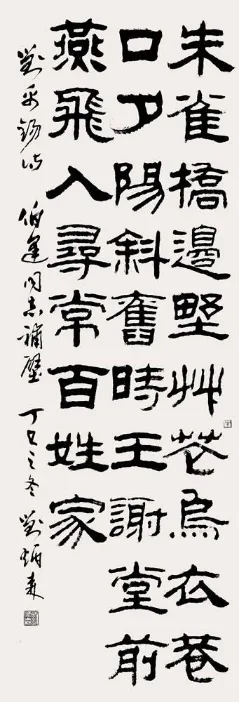 朱雀橋邊野艸花烏衣巷
口夕陽斜舊時王謝堂前
燕飛入尋常百姓家
劉禹錫詩 伯同志補壁 丁巳之冬 劉炳森